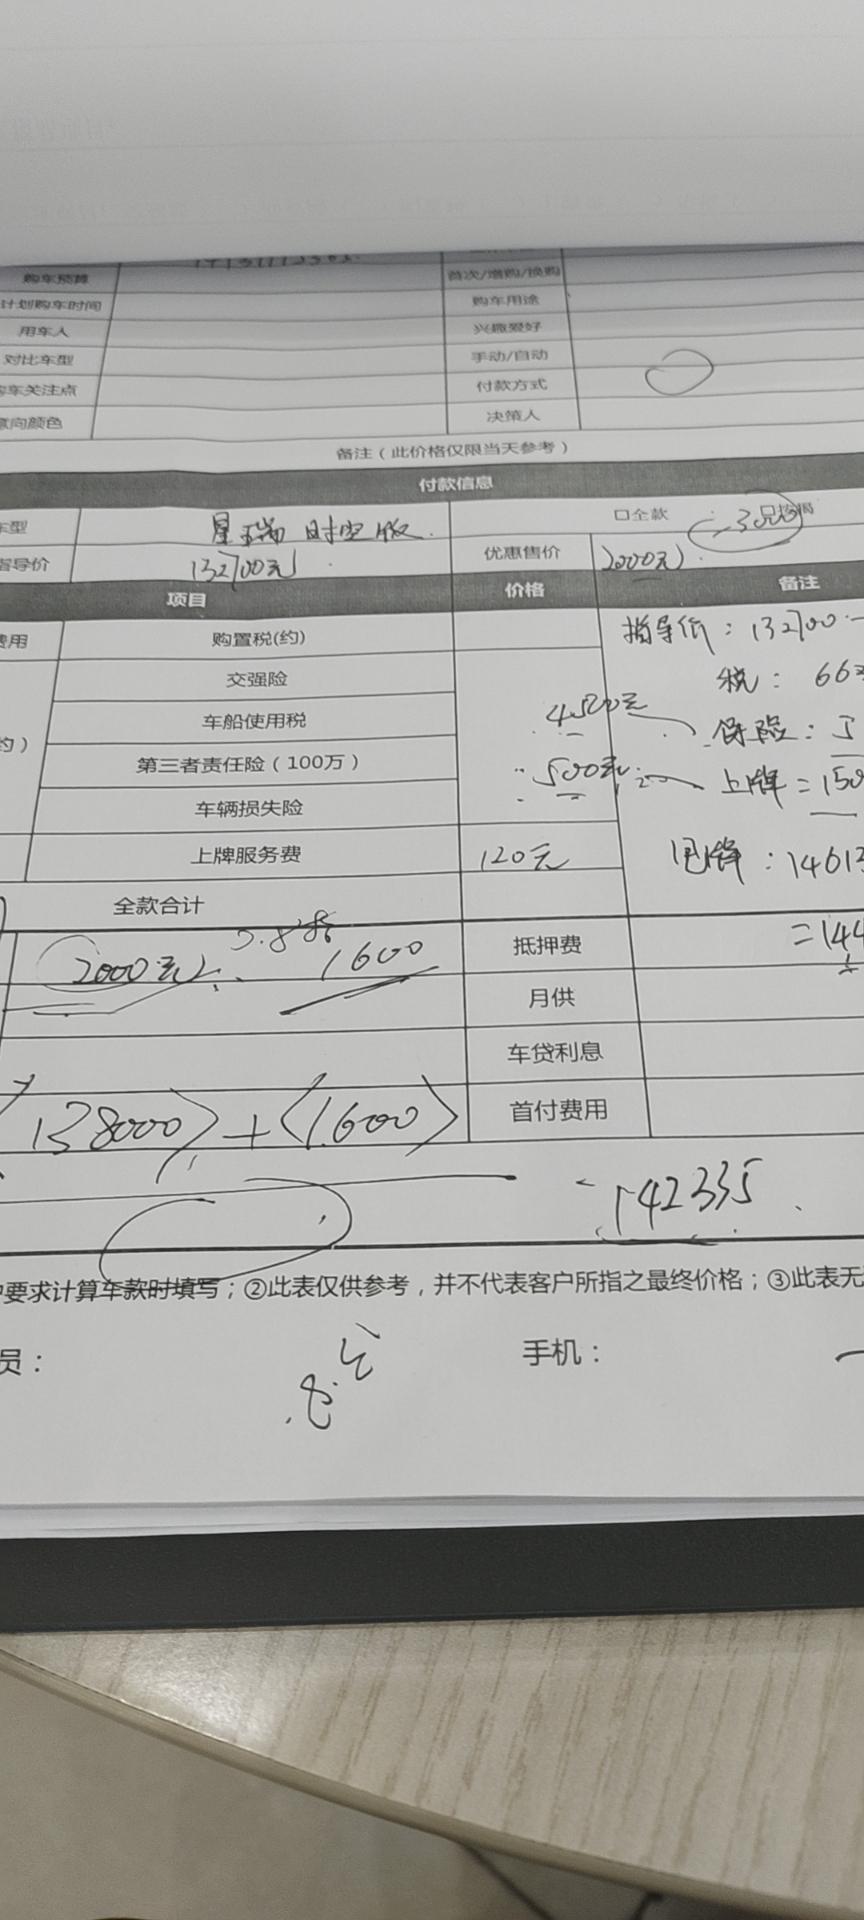 购车预算 首次/增购/换购
计划购车时间 购车用途
用车人 兴趣爱好
对比车型 手动/自动
车关注点 付款方式
意向颜色 决策人
备注（此价格仅限当天参考）
付款信息
车型 星瑞 时空版 口全款
指导价 132700元 优惠售价 2000元
项目 价格 备注
费用 购置税(约) 指导价：132700
交强险 税：663
车船使用税 4500元 保险：5
约） 第三者责任险（100万） 500元 上牌=150
车辆损失险
上牌服务费 120元 :14613
全款合计 =144
2000元 1600 抵押费
月供
车贷利息
〈138000〉+〈1600〉 首付费用
142335
要求计算车款时填写；②此表仅供参考，并不代表客户所指之最终价格；③此表无
员： 手机：